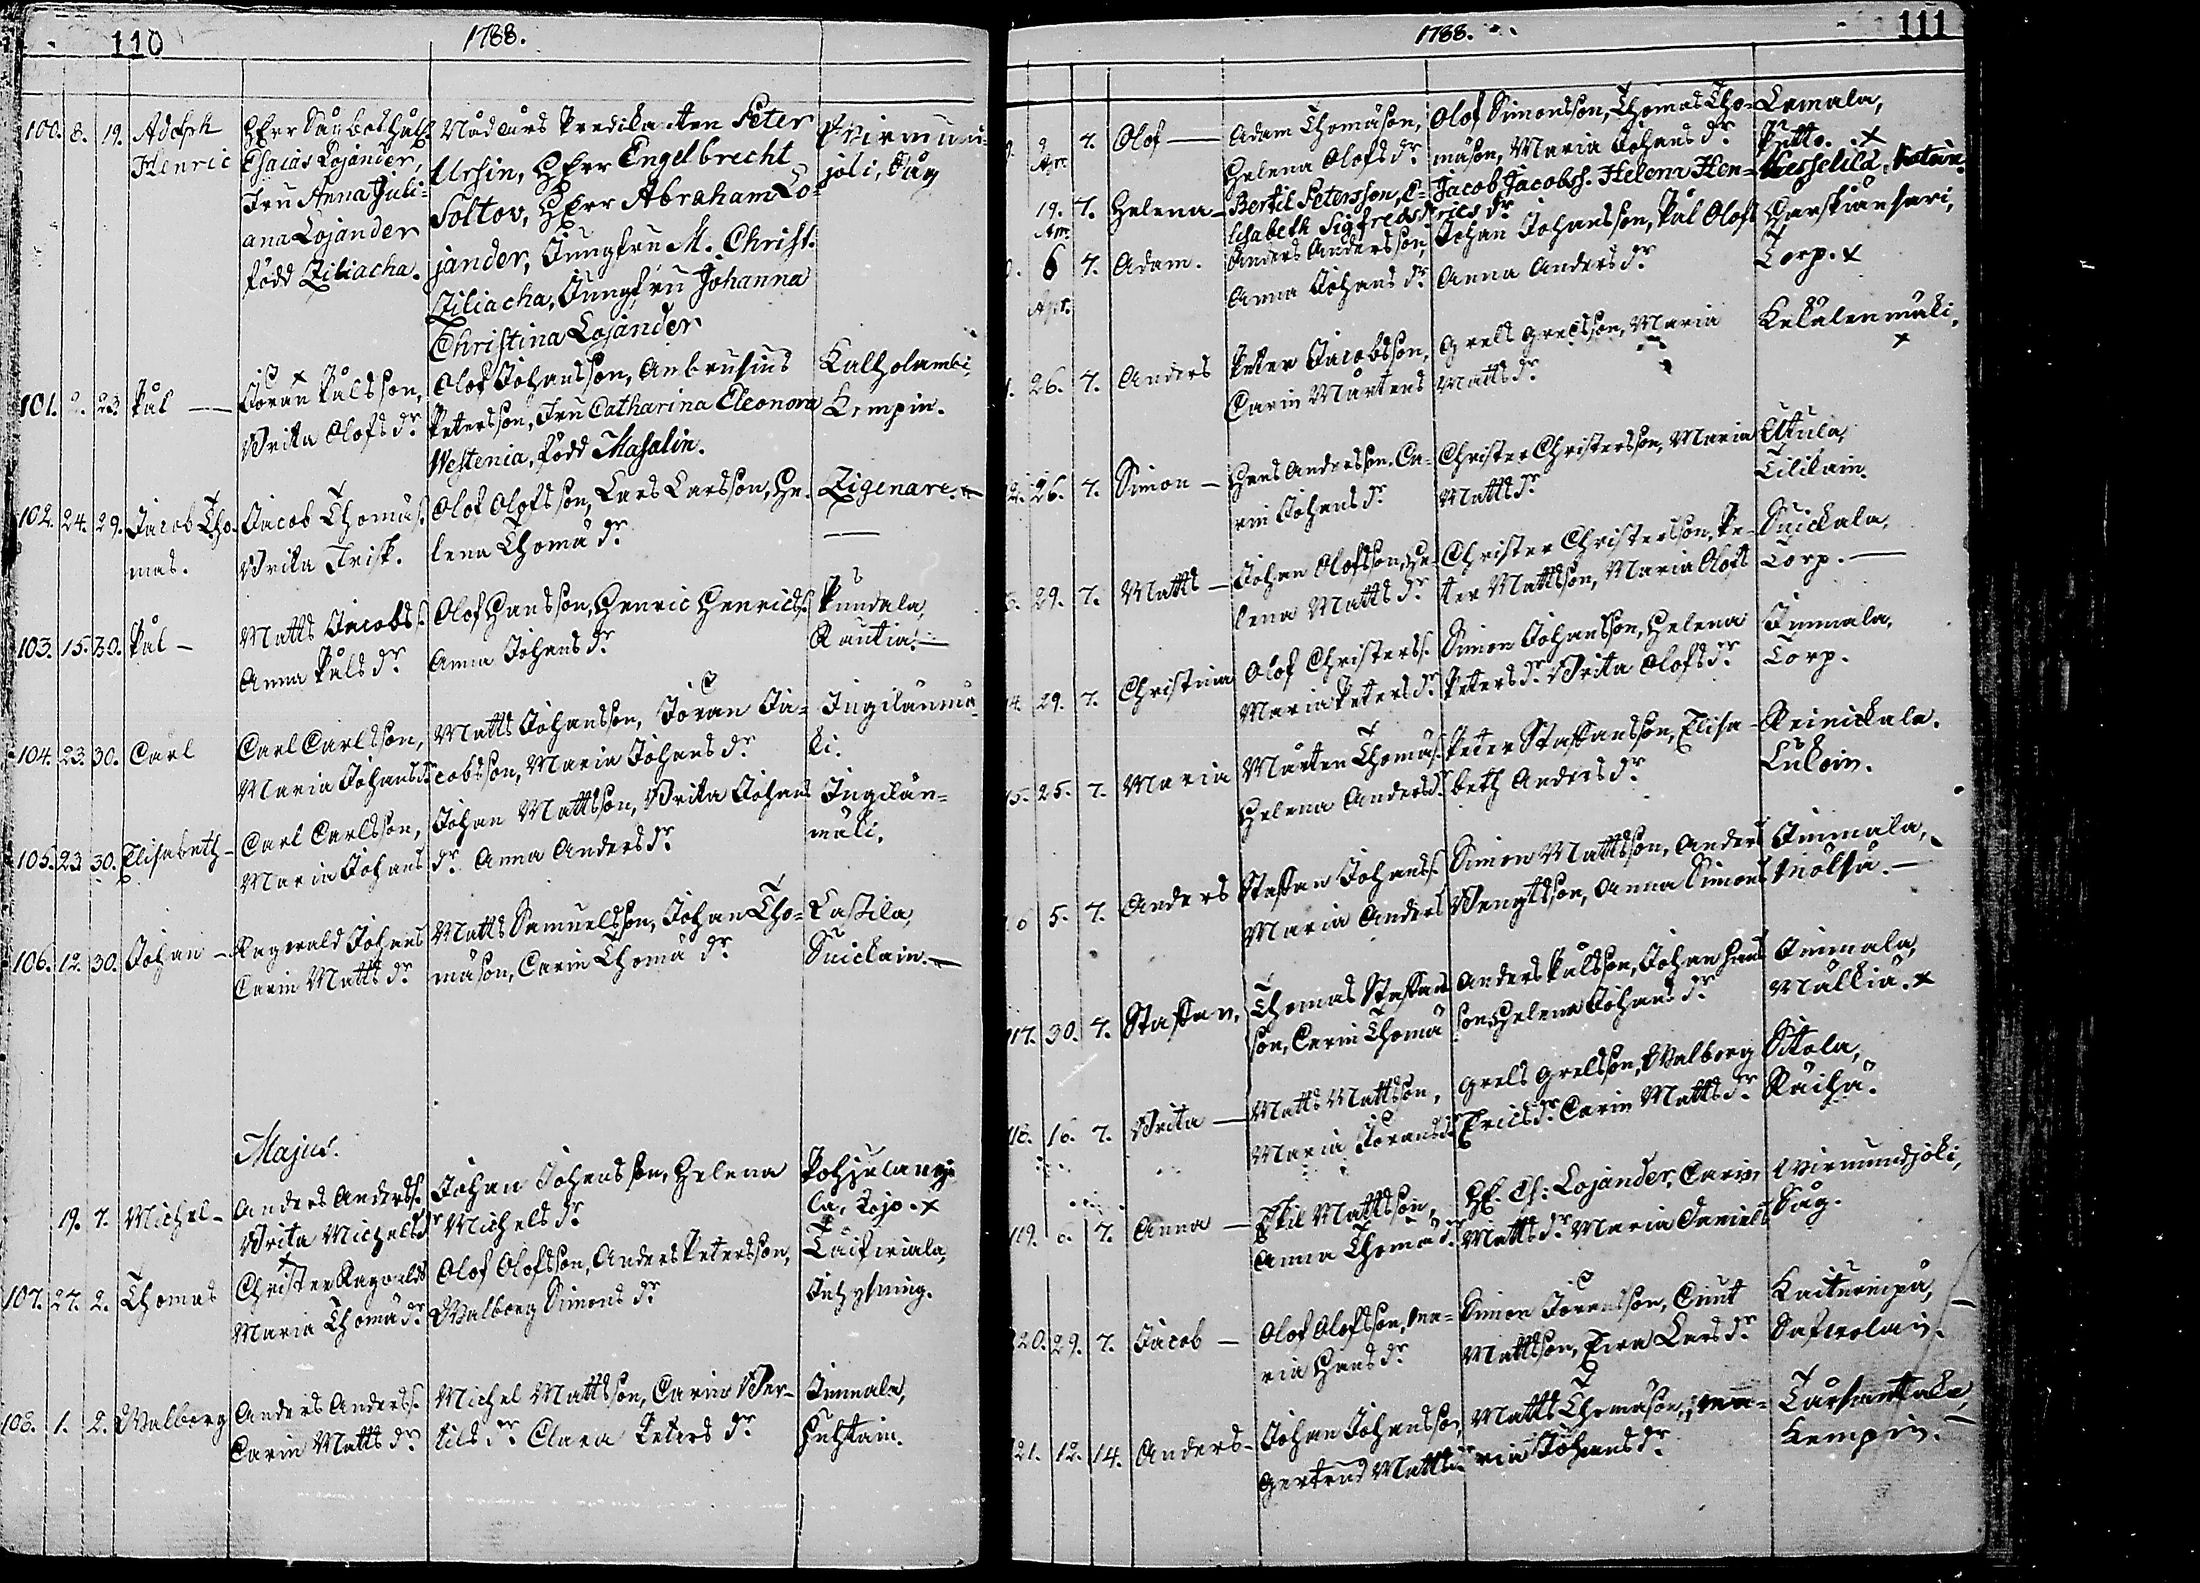 110
1788.
100. 8. 19. Adolph Henric
Herr
Esaias Lojander,
Fru Anna Juli-
ana Lojander
född Ziliacha.
Nådårs Predikanten Peter
Ursin, Herr Engelbrecht
Soltov, Herr Abraham Lo-
jander, Jungfru M. Christ.
Ziliacha, Jungfru Johanna
Christina Lojander
joki, Såg
101. 23. Pål —
Göran Pålsson,
Brita Olofs dr
Olof Johansson, Anbrusius
Petersson, Fru Catharina Eleonora
Westenia, född Masalin.
Kalholambi,
Kempin.
102. 24. 29. Jacob Tho-
mas.
Jacob Thomas.
Brita Frisk.
Olof Olofsson, Lars Larsson, He-
lena Thoma dr
Zigenare. —
103. 15. 30. Pål —
Matts Jacobss.
Anna Påls dr
Olof Hansson, Henric Henricss.
Anna Johans dr
Pundala,
Rautia. —
104. 23. 30. Carl
Carl Carlsson,
Maria Johans dr
Matts Johansson, Göran Ja-
cobsson, Maria Johans dr
Ingilänmä-
ki.
105. 23. 30. Elisabeth —
Carl Carlsson,
Maria Johans
Johan Mattsson, Brita Johans
dr Anna Anders dr
Ingilän-
mäki.
106. 12. 30. Johan —
Ragvald Johans
Carin Matts dr
Matts Samuelsson, Johan Tho-
masson, Carin Thoma dr
Lastila,
Suickain. —
Majus.
19. 7. Michel —
Anders Anderss.
Brita Michels dr
Johan Johansson, Helena
Michels dr
107. 27. 2. Thomas
Christer Ragvalds
Maria Thoma dr
Olof Olofsson, Anders Petersson,
Walborg Simons dr
108. 1. 2. Walborg
Anders Anderss.
Carin Matts dr
Michel Mattsson, Carin Ber-
tils dr Clara Peters dr
Immala,
111
1788.
9. Apr. 7. Olof —
Adam Thomasson,
Helena Olofs dr
Olof Simonsson, Thomas Tho-
masson, Maria Johans dr
Lemala,
Putto. x
19. Apr. 7. Helena —
Bertil Petersson, E-
lisabeth Sigfreds dr
Jacob Jacobss. Helena Hen-
rics dr
6 Apr. 7. Adam.
Anders Andersson,
Anna Johans dr
Johan Johansson, Pål Olofs
Anna Anders dr
Torp. x
26. 7. Anders
Peter Jacobsson,
Carin Mårtens
Grels Grelsson, Maria
Matts dr
x
26. 7. Simon —
Hans Andersson, Ca-
rin Johans dr
Christer Christersson, Maria
Matts dr
Utula,
Tilikain.
29. 7. Matts —
Johan Olofsson, He-
lena Matts dr
Christer Christersson, Pe-
ter Mattsson, Maria Olofs
Suickala,
Torp. —
29. 7. Christina
Olof Christerss.
Maria Peters dr
Simon Johansson, Helena
Peters dr Brita Olofs dr
Immala,
Torp.
25. 7. Maria
Mårten Thomas.
Helena Anders dr
Peter Staffansson, Elisa-
beth Anders dr
Reinickala.
5. 7. Anders
Staffan Johanss.
Maria Anders
Simon Mattsson, Anders
Bengtsson, Anna Simons
Immala,
Mölsä. —
117. 30. 7. Staffan.
Thomas Staffans
son, Carin Thoma
Anders Pålsson, Johan Hans
son, Helena Johans dr
Immala,
Mälkiä. x
118. 16. 7. Brita —
Matts Mattsson,
Maria Görans dr
Grels Grelsson, Walborg
Erics dr Carin Matts dr
Sitola,
Räihä.
119. 6. 7. Anna —
Eskil Mattsson,
Anna Thoma dr
Hr. Es: Lojander, Carin
Matts dr Maria Daniels
Wirmundjoki,
Såg.
120. 29. 7. Jacob —
Olof Olofsson, Ma-
ria Hans dr
Simon Göransson, Cnut
Mattsson, Ewa Lars dr
Safwolain. —
121. 12. 14. Anders —
Johan Johansson,
Gertrud Matts dr
Matts Thomasson, Ma-
ria Johans dr
Kempin. —